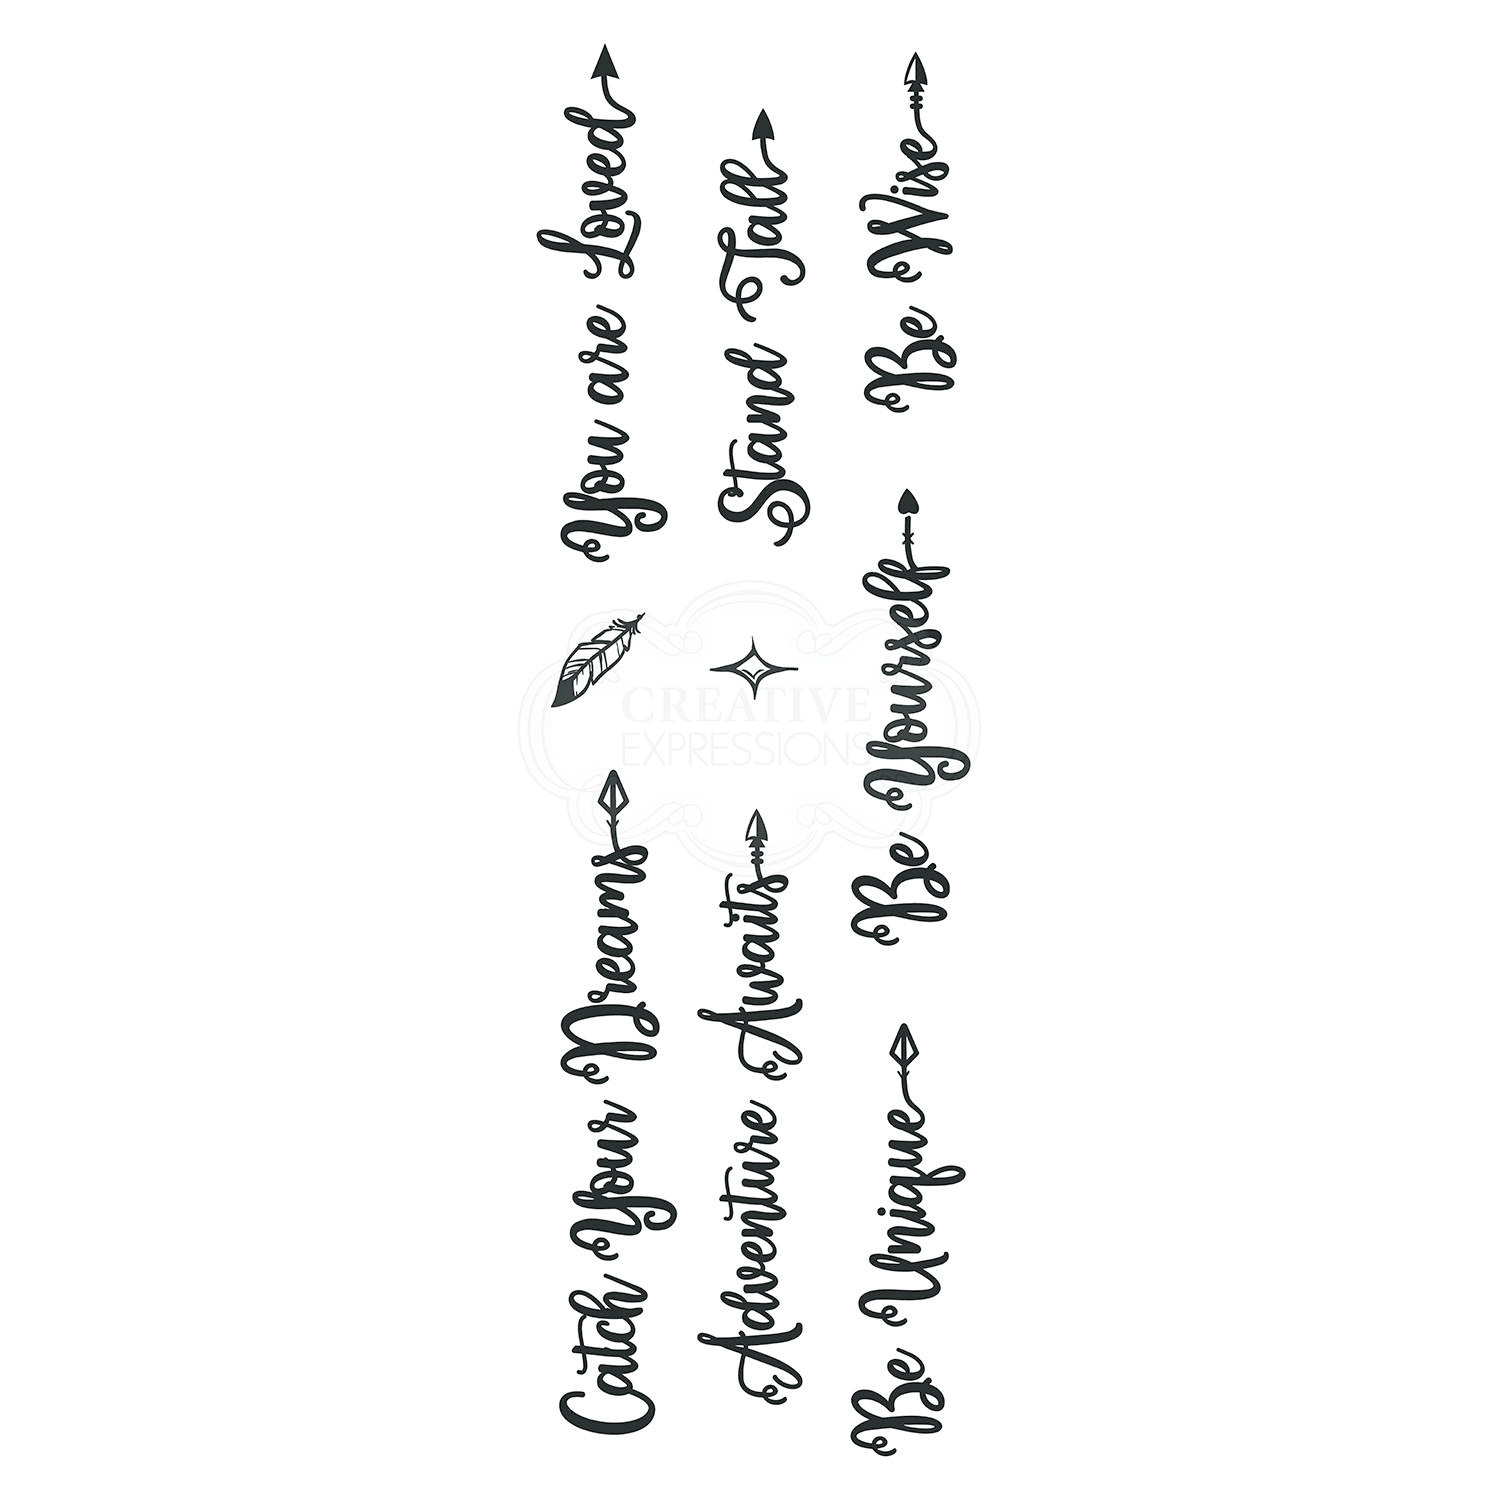 You are Loved
Stand Tall
Be Wise
Be Yourself
CREATIVE
EXPRESSIONS
Catch Your Dreams
Adventure Awaits
Be Unique